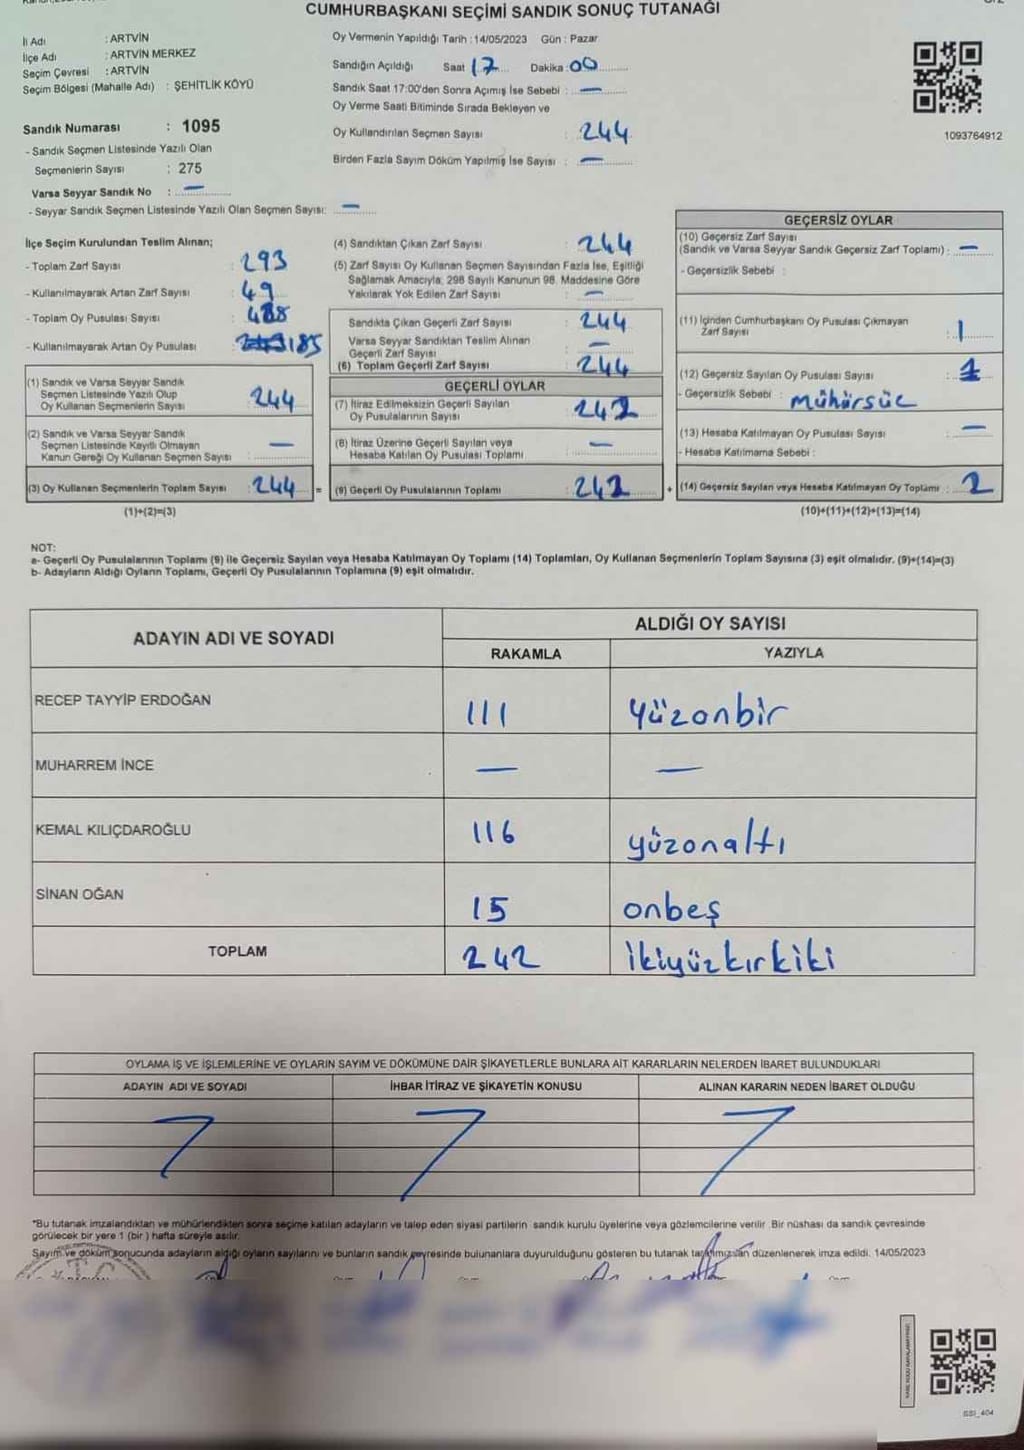 CUMHURBAŞKANI SEÇİMİ SANDIK SONUÇ TUTANAĞI
İl Adı : ARTVİN
İlçe Adı : ARTVİN MERKEZ
Seçim Çevresi : ARTVİN
Seçim Bölgesi (Mahalle Adı) : ŞEHİTLİK KÖYÜ
Sandık Numarası : 1095
- Sandık Seçmen Listesinde Yazılı Olan
Seçmenlerin Sayısı : 275
Varsa Seyyar Sandık No : —
- Seyyar Sandık Seçmen Listesinde Yazılı Olan Seçmen Sayısı: —
Oy Vermenin Yapıldığı Tarih : 14/05/2023 Gün : Pazar
Sandığın Açıldığı Saat 17 Dakika : 00
Sandık Saat 17:00'den Sonra Açımış İse Sebebi : —
Oy Verme Saati Bitiminde Sırada Bekleyen ve
Oy Kullandırılan Seçmen Sayısı : 244
Birden Fazla Sayım Döküm Yapılmış İse Sayısı : —
1093764912
İlçe Seçim Kurulundan Teslim Alınan;
- Toplam Zarf Sayısı : 293
- Kullanılmayarak Artan Zarf Sayısı : 49
- Toplam Oy Pusulası Sayısı :
- Kullanılmayarak Artan Oy Pusulası : 185
(1) Sandık ve Varsa Seyyar Sandık
Seçmen Listesinde Yazılı Olup
Oy Kullanan Seçmenlerin Sayısı : 244
(2) Sandık ve Varsa Seyyar Sandık
Seçmen Listesinde Kayıtlı Olmayan
Kanun Gereği Oy Kullanan Seçmen Sayısı : —
(3) Oy Kullanan Seçmenlerin Toplam Sayısı : 244 =
(1)+(2)=(3)
(4) Sandıktan Çıkan Zarf Sayısı : 244
(5) Zarf Sayısı Oy Kullanan Seçmen Sayısından Fazla İse, Eşitliği
Sağlamak Amacıyla; 298 Sayılı Kanunun 98. Maddesine Göre
Yakılarak Yok Edilen Zarf Sayısı : —
Sandıkta Çıkan Geçerli Zarf Sayısı : 244
Varsa Seyyar Sandıktan Teslim Alınan
Geçerli Zarf Sayısı : —
(6) Toplam Geçerli Zarf Sayısı : 244
GEÇERLİ OYLAR
(7) İtiraz Edilmeksizin Geçerli Sayılan
Oy Pusulalarının Sayısı : 242
(8) İtiraz Üzerine Geçerli Sayılan veya
Hesaba Katılan Oy Pusulası Toplamı : —
(9) Geçerli Oy Pusulalarının Toplamı : 242 +
GEÇERSİZ OYLAR
(10) Geçersiz Zarf Sayısı
(Sandık ve Varsa Seyyar Sandık Geçersiz Zarf Toplamı) : —
- Geçersizlik Sebebi :
(11) İçinden Cumhurbaşkanı Oy Pusulası Çıkmayan
Zarf Sayısı : 1
(12) Geçersiz Sayılan Oy Pusulası Sayısı : 1
- Geçersizlik Sebebi : mühürsüz
(13) Hesaba Katılmayan Oy Pusulası Sayısı : —
- Hesaba Katılmama Sebebi :
(14) Geçersiz Sayılan veya Hesaba Katılmayan Oy Toplamı : 2
(10)+(11)+(12)+(13)=(14)
NOT:
a- Geçerli Oy Pusulalarının Toplamı (9) ile Geçersiz Sayılan veya Hesaba Katılmayan Oy Toplamı (14) Toplamları, Oy Kullanan Seçmenlerin Toplam Sayısına (3) eşit olmalıdır. (9)+(14)=(3)
b- Adayların Aldığı Oyların Toplamı, Geçerli Oy Pusulalarının Toplamına (9) eşit olmalıdır.
ADAYIN ADI VE SOYADI
ALDIĞI OY SAYISI
RAKAMLA YAZIYLA
RECEP TAYYİP ERDOĞAN 111 yüzonbir
MUHARREM İNCE — —
KEMAL KILIÇDAROĞLU 116 yüzonaltı
SİNAN OĞAN 15 onbeş
TOPLAM 242 ikiyüzkırkiki
OYLAMA İŞ VE İŞLEMLERİNE VE OYLARIN SAYIM VE DÖKÜMÜNE DAİR ŞİKAYETLERLE BUNLARA AİT KARARLARIN NELERDEN İBARET BULUNDUKLARI
ADAYIN ADI VE SOYADI İHBAR İTİRAZ VE ŞİKAYETİN KONUSU ALINAN KARARIN NEDEN İBARET OLDUĞU
*Bu tutanak imzalandıktan ve mühürlendikten sonra seçime katılan adayların ve talep eden siyasi partilerin sandık kurulu üyelerine veya gözlemcilerine verilir. Bir nüshası da sandık çevresinde
görülecek bir yere 1 (bir) hafta süreyle asılır.
Sayım ve döküm sonucunda adayların aldığı oyların sayılarını ve bunların sandık çevresinde bulunanlara duyurulduğunu gösteren bu tutanak tarafımızdan düzenlenerek imza edildi. 14/05/2023
T.C.
GSI_404